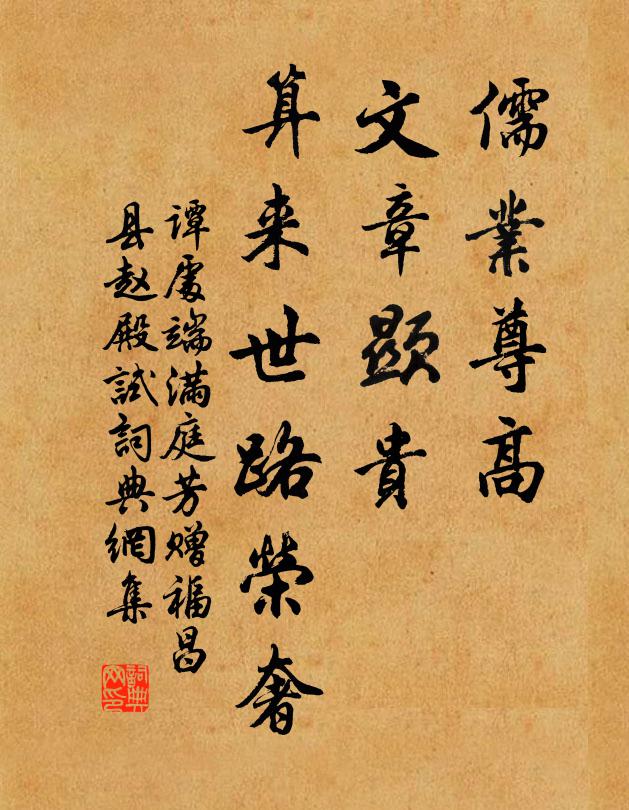 儒業尊高
文章顯貴
算来世路榮奢
譚處端滿庭芳赠福昌
县赵殿試詞典網集
詞典網印